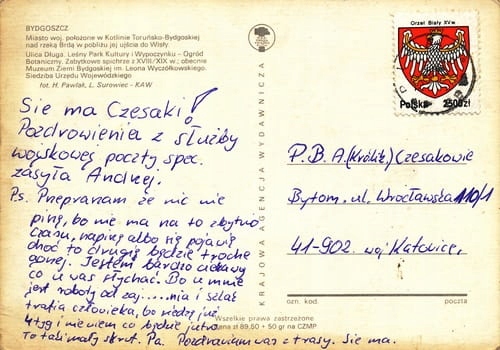 BYDGOSZCZ
Miasto woj. położone w Kotlinie Toruńsko-Bydgoskiej
nad rzeką Brdą w pobliżu jej ujścia do Wisły
Ulica Długa. Leśny Park Kultury i Wypoczynku – Ogród
Botaniczny. Zabytkowe spichrze z XVIII/XIX w.; obecnie
Muzeum Ziemi Bydgoskiej im. Leona Wyczółkowskiego.
Siedziba Urzędu Wojewódzkiego
fot. H. Pawlak, L. Surowiec - KAW
Sie ma Czesaki!
Pozdrowienia z służby
wojskowej poczty spec.
zasyła Andrzej.
Ps. Przepraszam że nic nie
piszę, bo nie ma na to zbytnio
czasu, napiszę albo się pojawię
choć to drugie będzie trochę
gorzej. Jestem bardzo ciekawy
co u was słychać. Bo u mnie
jest roboty od zaj.....nia i szlag
trafia człowieka, bo siedzę już
4 tyg i nie wiem co będzie jutro.
To taki mały skrót. Pa. Pozdrawiam was z trasy. Sie ma.
KRAJOWA AGENCJA WYDAWNICZA
Wszelkie prawa zastrzeżone
Cena zł 89,50 + 50 gr na CZMP
Orzeł Biały XV w.
Polska 2500zł
P.B.A. (Królik) Czesakowie
Bytom. ul. Wrocławska 110/1
41-902. woj Katowice,
ozn. kod.
poczta